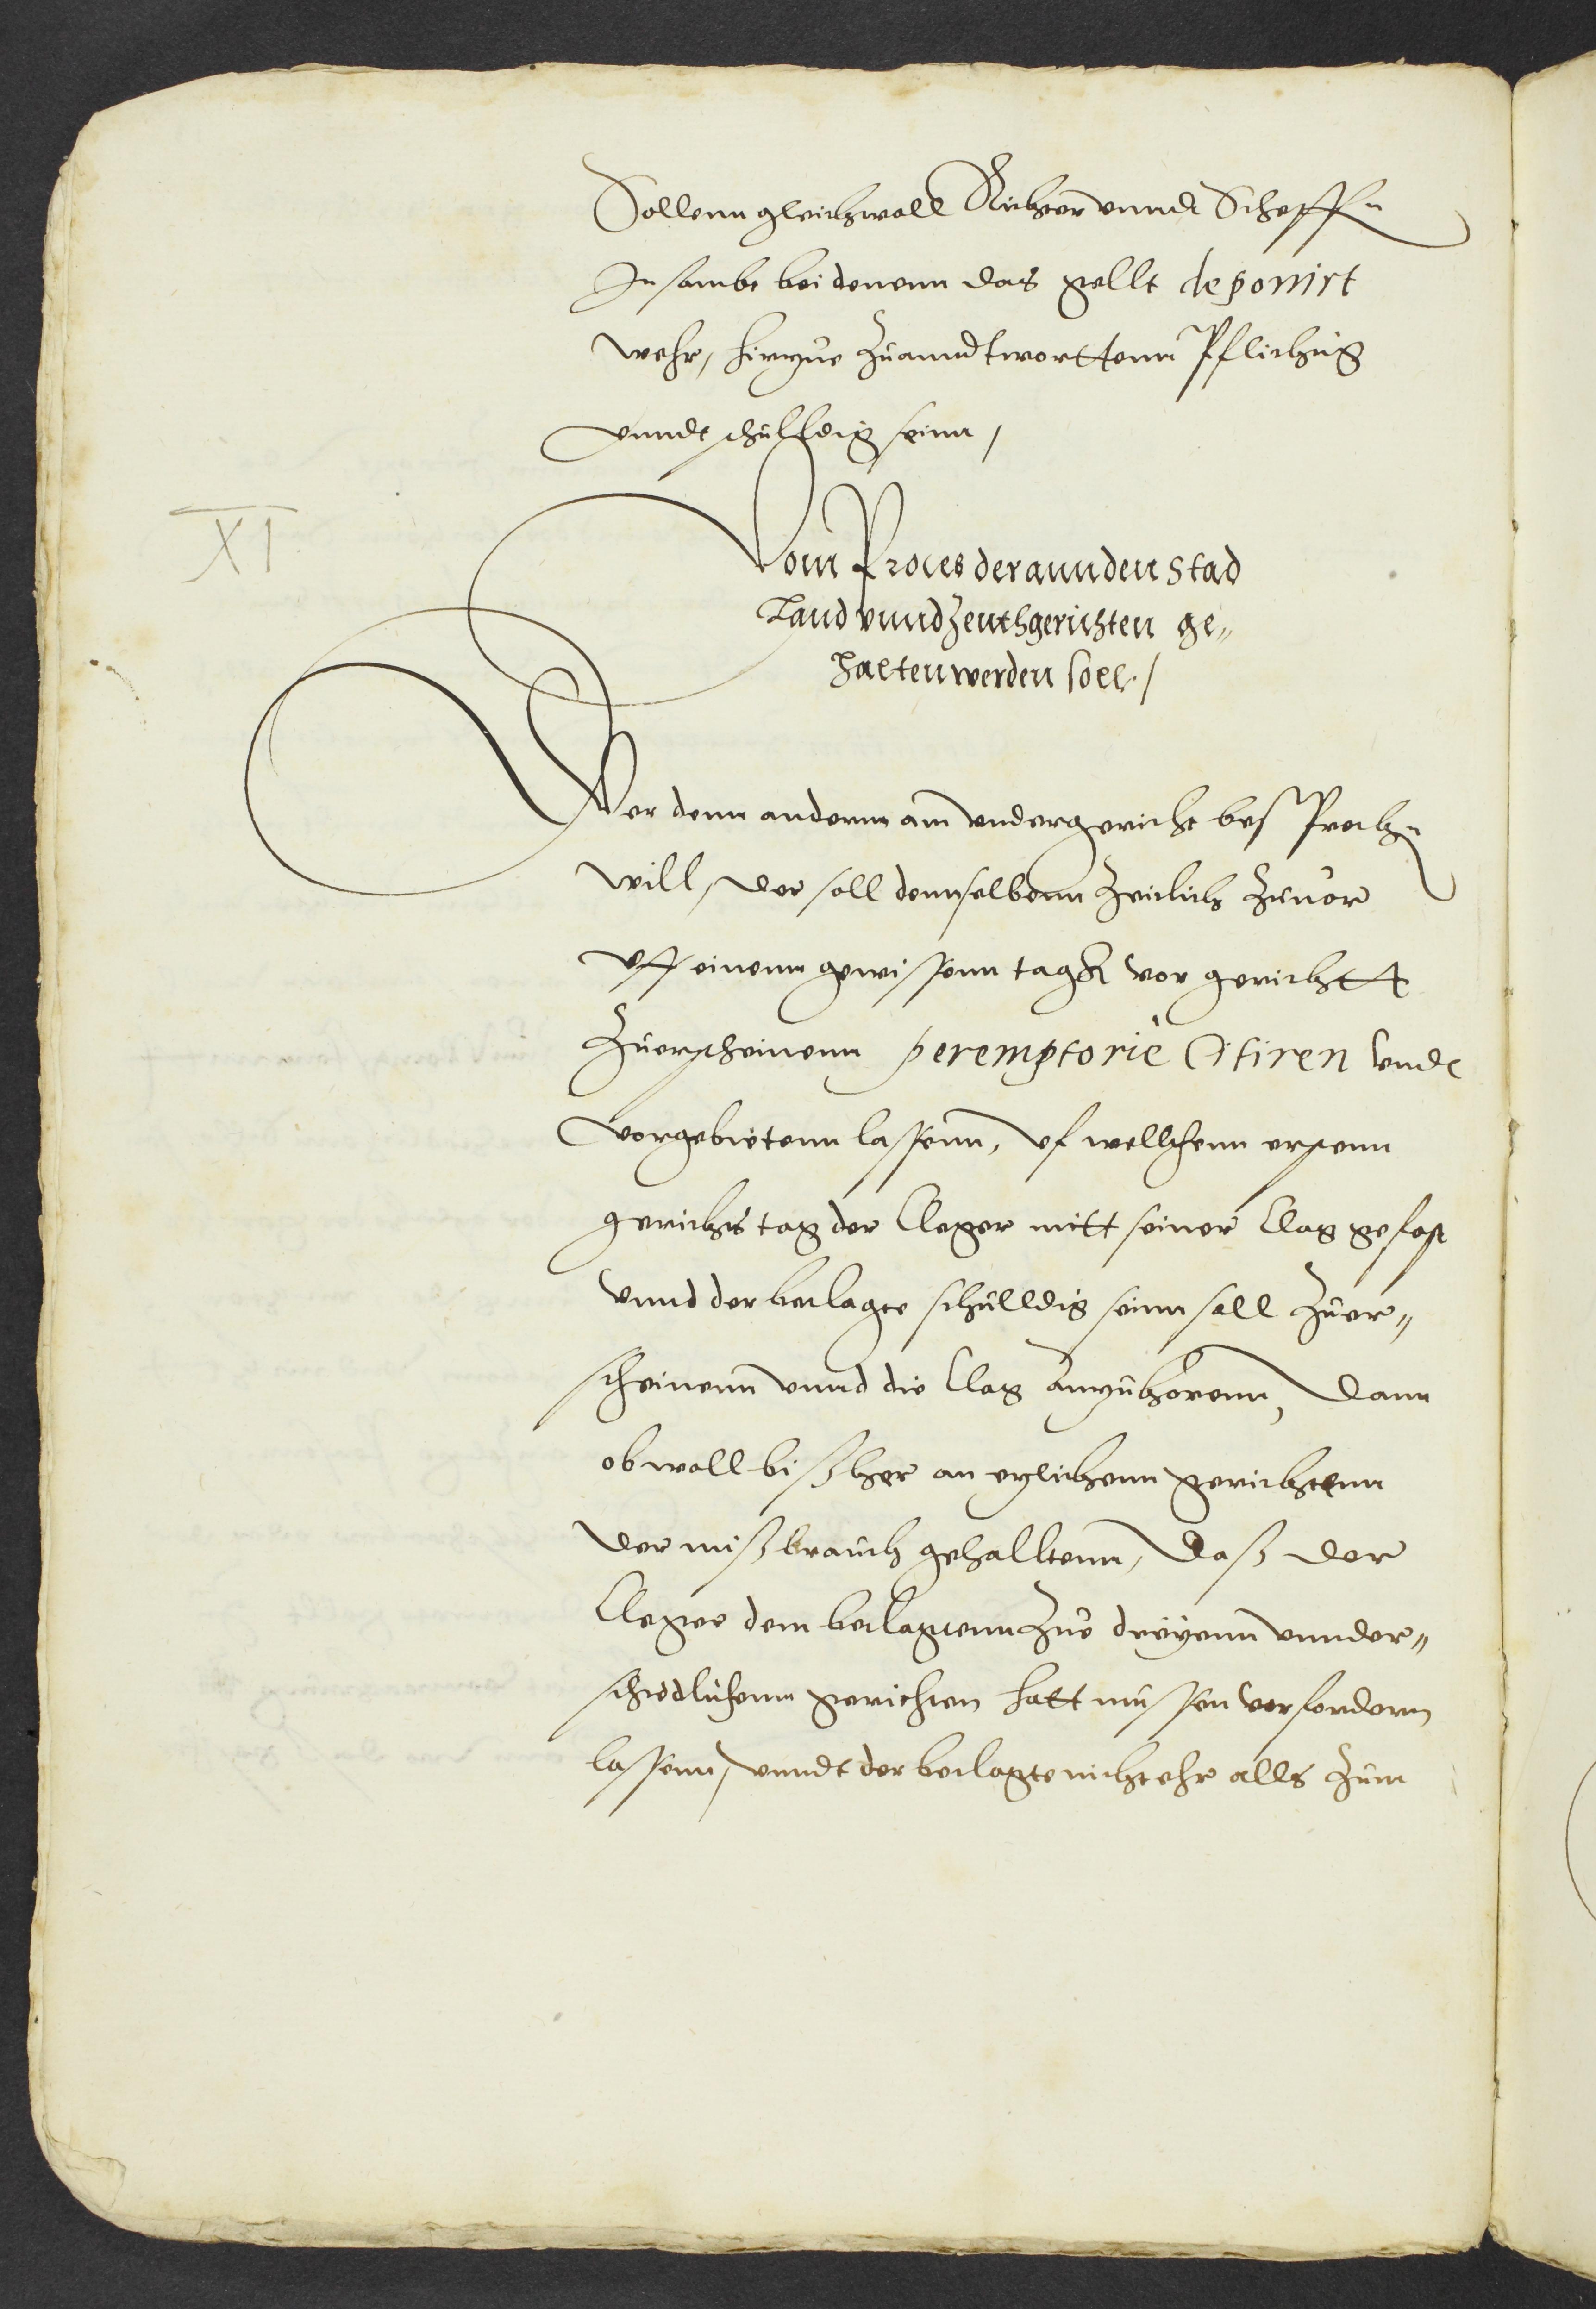 Sollenn gleichwoll Richter vnnd Scheffn
In sambt bei denenn das gellt deponirt
wehr, hirzue zuanndtworttenn Pflichtig
vnndt schulldig seinn,
XI
Vom Proces der ann den Stad
Land vnnd Zenthgerichten ge„
halten werden soll,
Wer denn andernn am vndergericht besprechn
will, der soll dennselbenn zeitlich zuuor
vff einenn gewissenn tagk vor gerichtt
zuerscheinenn peremptoriè Citiren vnndt
vorgebietenn lassenn, vf wellchenn erstenn
gerichts tag der Cleger mitt seiner Clag gefast
vnnd der beclagte schulldig seinn soll zuer„
scheinenn vnnd die Clag anzuhorenn, dann
obwoll bißher an ezlichenn gerichtenn
der mißbrauch gehalltenn, daß der
Cleger dem beclagtenn zue dreyenn vnnder„
schiedlichenn gerichten hatt mussen vorfordern
lassenn, vnndt der beclagte nicht ehr alls zum